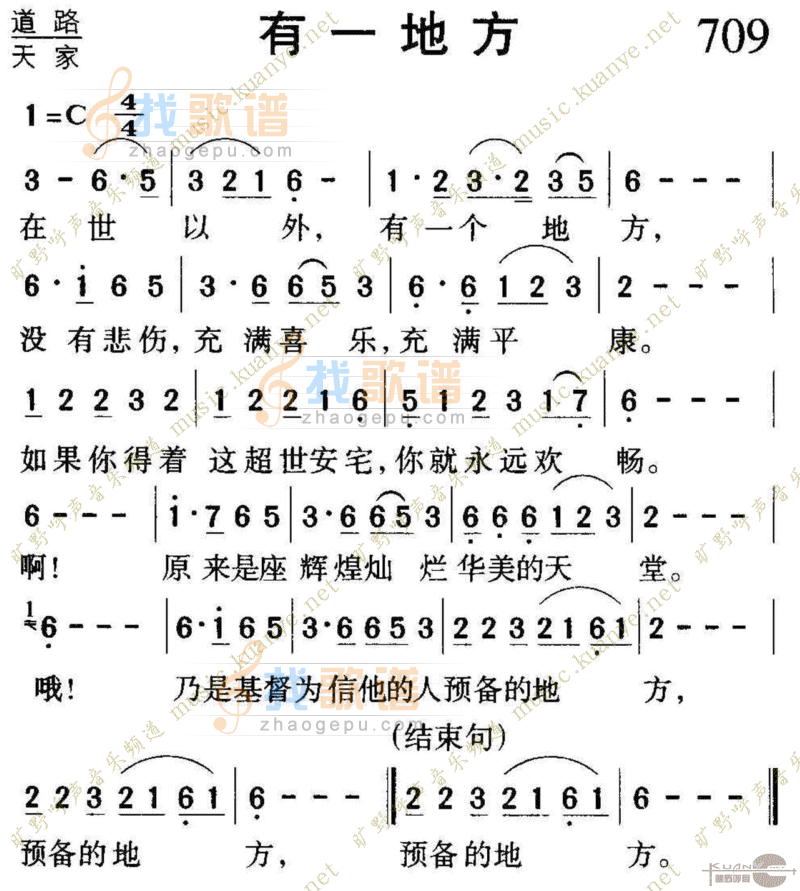 道路
天家
有一地方
709
1=C 4/4
3 - 6·5 | 3 2 1 6 - | 1·2 3·2 3 5 | 6 - - - |
在 世 以 外, 有一个 地 方,
6·i 6 5 | 3·6 6 5 3 | 6·6 1 2 3 | 2 - - - |
没 有悲伤,充 满喜 乐,充 满平 康。
1 2 2 3 2 | 1 2 2 1 6 | 5 1 2 3 1 7 | 6 - - - |
如果你得着 这超世安宅,你就永远欢 畅。
6 - - - | i·7 6 5 | 3·6 6 5 3 | 6 6 6 1 2 3 | 2 - - - |
啊! 原来是座 辉煌灿 烂 华美的天 堂。
1 6 - - - | 6·i 6 5 | 3·6 6 5 3 | 2 2 3 2 1 6 1 | 2 - - - |
哦! 乃是基督为信他的人预备的地 方,
(结束句)
2 2 3 2 1 6 1 | 6 - - - ‖ 2 2 3 2 1 6 1 | 6 - - - ‖
预备的地 方, 预备的地 方。
找歌谱
zhaogepu.com
旷野呼声音乐频道 music.kuanye.net